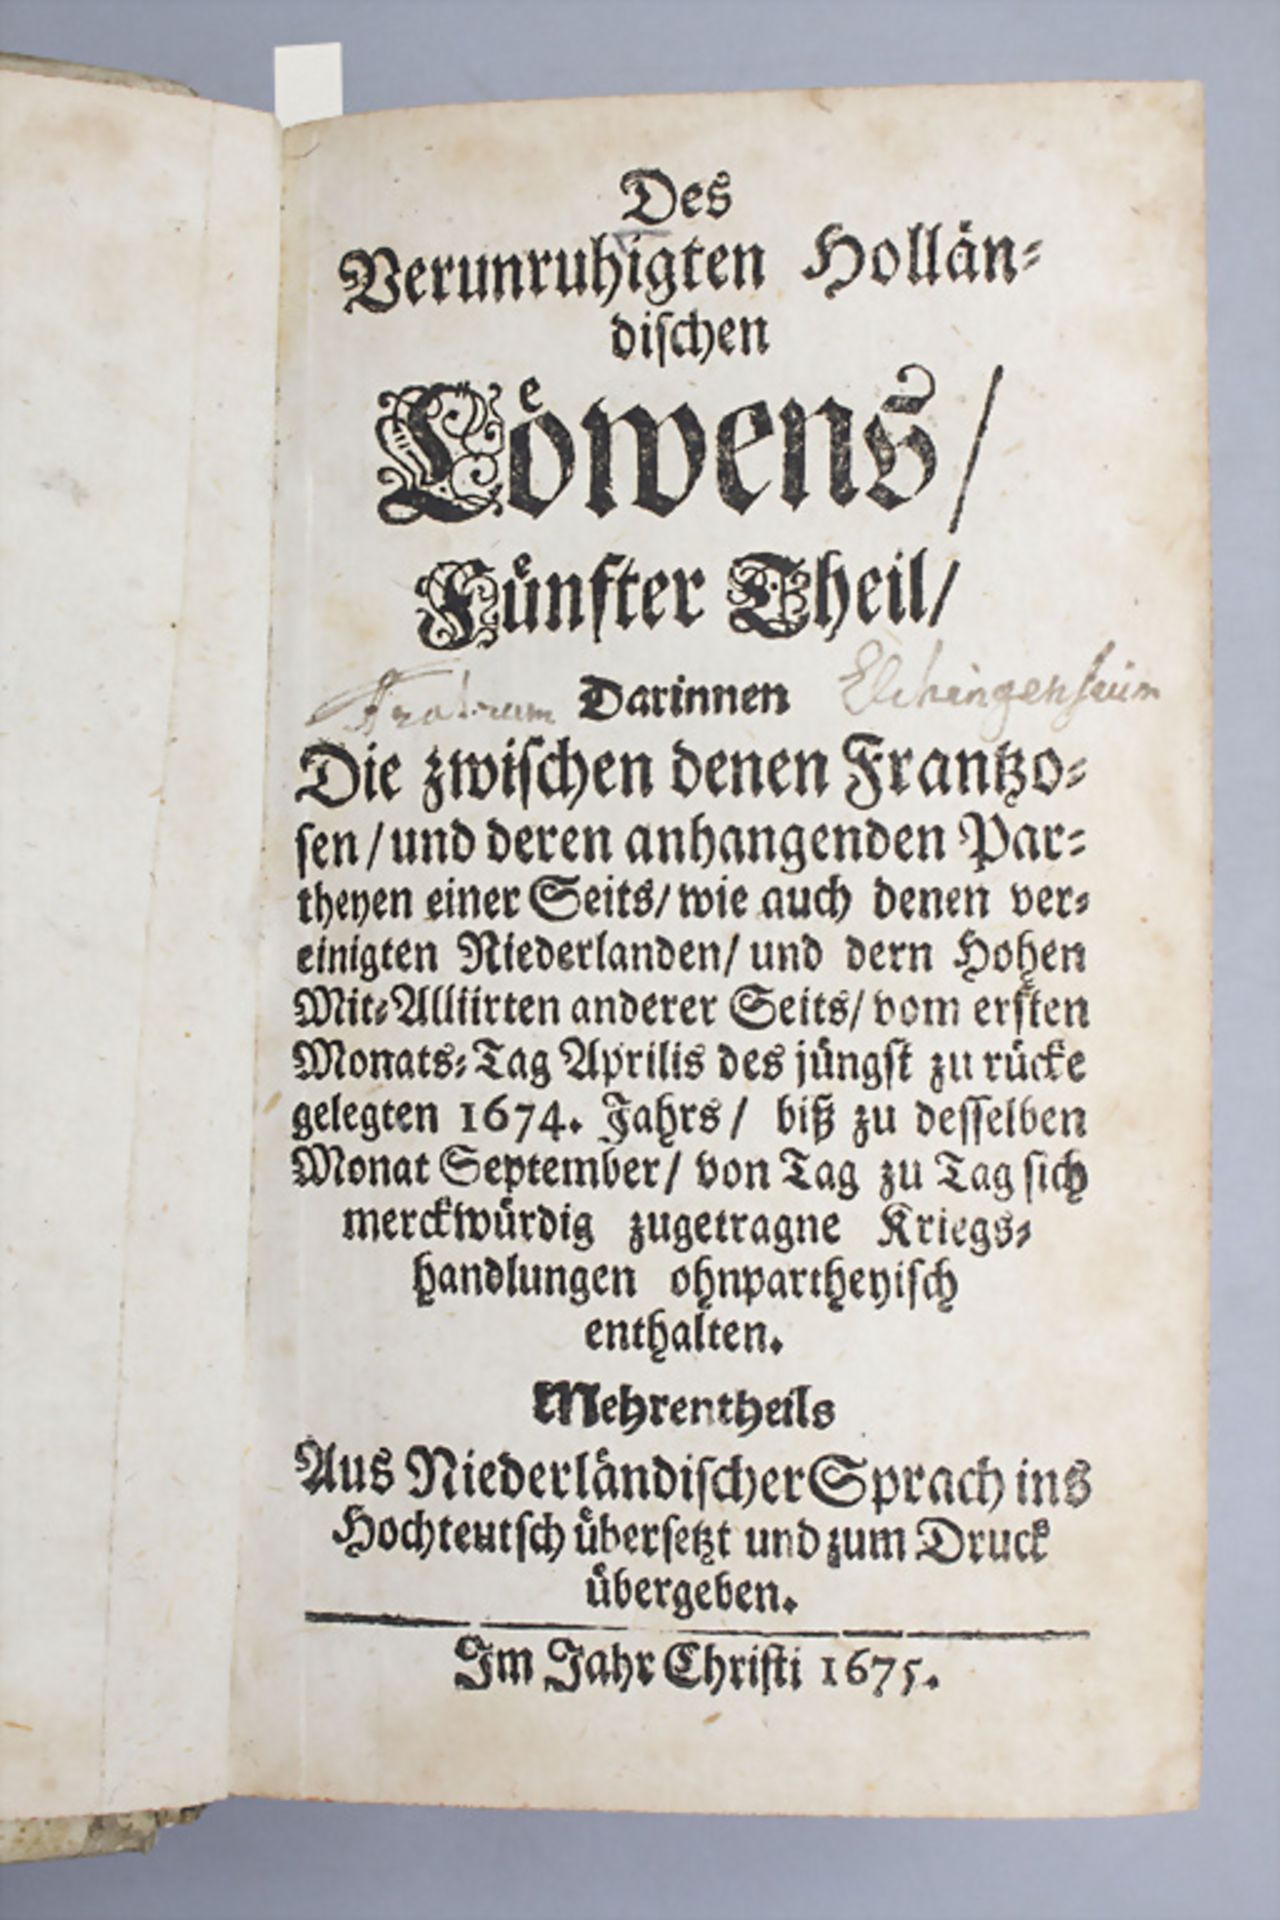 Des
Verunruhigten Hollän-
dischen
Löwens/
Fünfter Theil/
Fratrum Darinnen Elchingensium
Die zwischen denen Frantzo-
sen/und deren anhangenden Par-
theyen einer Seits/wie auch denen ver-
einigten Niederlanden/und dern Hohen
Mit-Alliirten anderer Seits/vom ersten
Monats-Tag Aprilis des jüngst zu rücke
gelegten 1674. Jahrs/ biß zu desselben
Monat September/ von Tag zu Tag sich
merckwürdig zugetragne Kriegs-
handlungen ohnpartheyisch
enthalten.
Mehrentheils
Aus Niederländischer Sprach ins
Hochteutsch übersetzt und zum Druck
übergeben.
Im Jahr Christi 1675.